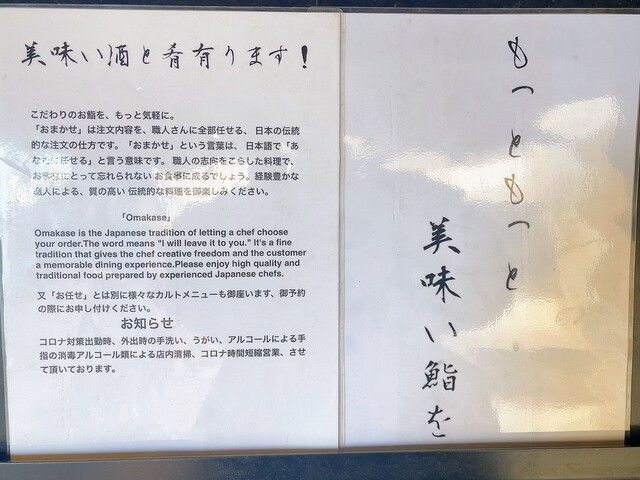 美味い酒と肴有ります!
こだわりのお鮨を、もっと気軽に。
「おまかせ」は注文内容を、職人さんに全部任せる、日本の伝統
的な注文の仕方です。「おまかせ」という言葉は、日本語で「あ
なたに任せる」と言う意味です。 職人の志向をこらした料理で、
お客様にとって忘れられない お食事に成るでしょう。経験豊かな
職人による、質の高い 伝統的な料理を御楽しみください。
「Omakase」
Omakase is the Japanese tradition of letting a chef choose
your order.The word means "I will leave it to you." It's a fine
tradition that gives the chef creative freedom and the customer
a memorable dining experience.Please enjoy high quality and
traditional food prepared by experienced Japanese chefs.
又「お任せ」とは別に様々なカルトメニューも御座います、御予約
の際にお申し付けください。
お知らせ
コロナ対策出勤時、外出時の手洗い、うがい、アルコールによる手
指の消毒アルコール類による店内清掃、コロナ時間短縮営業、させ
て頂いております。
もっともっと
美味い鮨を